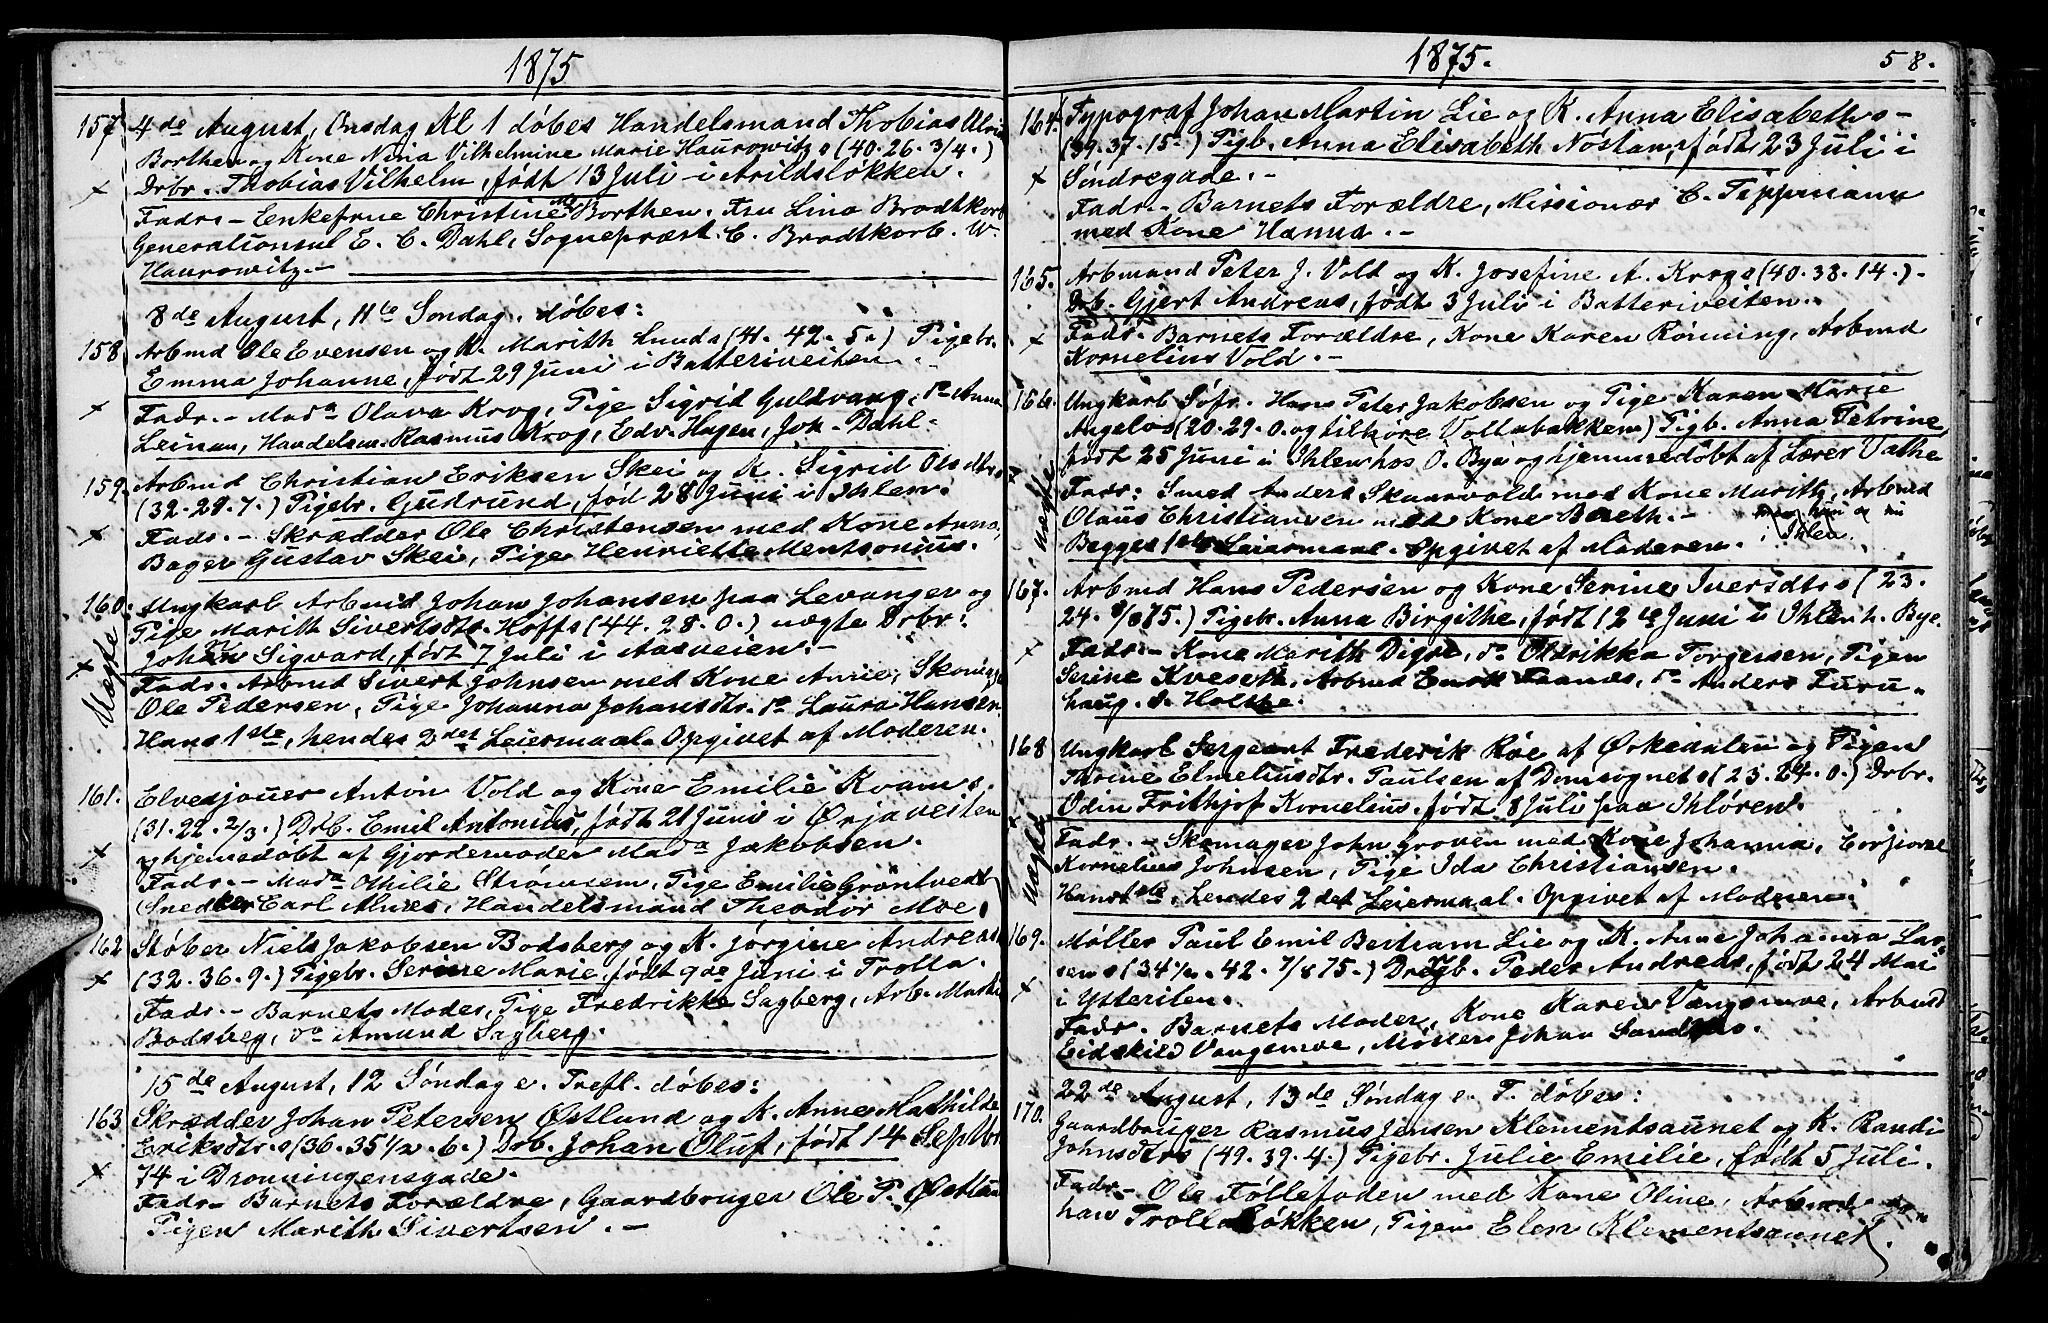 1875
157 4de August, Onsdag Kl 1 døbes Handelsmand Thobias Ulrik
Borthen og Kone Nina Vilhelmine Marie Haurowitz s (40. 26. 3/4.)
Drbr. Thobias Vilhelm, født 13 Juli i Arildsløkken.
Fadr. - Enkefrue Christine Borthen. Fru Lina Brodtkorb
Generalkonsul E. C. Dahl, Sognepræst C. Brodtkorb. W.
Haurowitz. -
8de August, 11te Søndag. døbes:
158 Arbmd Ole Evensen og K. Marith Lunds (41. 42. 5.) Pigebr.
Emma Johanne, født 29 Juni i Batteriveiten.
Fadr. - Mada Olava Krog, Pige Sigrid Guldvang, do Anna
Leinan, Handelsm. Rasmus Krog, Edv. Hagen, Joh. Dahl -
159. Arbmd Christian Eriksen Skei og K. Sigrid Olsdtrs
(32. 29. 7.) Pigebr. Gudrund, fød 28 Juni i Ihlen.
Fadr. - Skrædder Ole Christensen med Kone Anna,
Bager Gustav Skei, Pige Henriette Mentsonius.
160. Ungkarl Arbmd Johan Johansen paa Levanger og
Pige Marith Sivertsdtr. Hoffs (44. 28. 0.) uægte Drbr.
Johan Sigvard, født 7 Juli i Aasveien. -
Uægte
Fadr. Arbmd Sivert Johnsen med Kone Anne, Skomager
Ole Pedersen, Pige Johanna Johansdtr. do Laura Hansen
Hans 1ste, hendes 2det Leiermaal. Opgivet af Moderen.
161. Elvedjouer Anton Vold og Kone Emilie Kvams.
(31. 22. 2/3.) Drb. Emil Antonius, født 21 Juni i Ørjaveiten
og hjemedøbt af Gjordemoder Mada Jakobsen.
Fadr. - Mada Othilie Strømsem, Pige Emilie Grøntvedt
Snedker Carl Alnes, Handelsmand Theodor Moe.
162 Støber Niels Jakobsen Bodsberg og K. Jørgine Andreas
(32. 36. 9.) Pigebr. Serine Marie, født 9de Juni i Trolla.
Fadr. - Barnets Moder, Pige Fredrikke Sagberg, Arb. Marti
Bodsberg, do Amund Sagberg.
15de August, 12 Søndag e. Trefl. døbes:
163 Skrædder Johan Petersen Østlund og K. Anne Mathilde
Eriksdtr. s (36. 35 1/2. 6.) Drb. Johan Oluf, født 14 Septbr
74 i Dronningensgade.
Fadr. - Barnets Forældre, Gaardbruger Ole P. Østlun
Pigen Marith Sivertsen. -
1875. 58.
164. Typograf Johan Martin Lie og K. Anna Elisabeths -
(39. 37. 15.) Pigb. Anna Elisabeth Nøstan, født 23 Juli i
Søndregade. -
Fadr. - Barnets Forældre, Missionær C. Tippmann
med Kone Hanna. -
165. Arbmand Peter J. Vold og K. Josefine A. Krogs (40. 38. 14.) -
Drb. Gjert Andreas, født 3 Juli i Batteriveiten.
Fadr. Barnets Forældre, Kone Karen Rønning, Arbmd
Kornelius Vold. -
166. Ungkarl Søfr. Hans Peter Jakobsen og Pige Karen Marie
Angelos (20. 29. 0. og tilhøre Vollabakken) Pigb. Anna Petrine,
født 25 Juni i Ihlen hos O. Bye og hjemmedøbt af Lærer Vathe
Uægte
Fadr: Smed Anders Skaarvold med Kone Marith, Arbmd
Olaus Christiansen med Kone Bereth. -
Begges 1ste Leiermaal. Opgivet af Moderen. Ihlen.
167. Arbmd Hans Pedersen og Kone Serine Iversdtrs (23.
24. 8/8 75.) Pigebr. Anna Birgithe, født 12te Juni i Ihlen h. Bye.
Fadr. - Kone Marith Digre, do Oldrikka Torgersen, Pigen
Serine Kveseth, Arbmd Enok Faanes, do Anders Furu-
haug. S. Holthe.
168 Ungkarl Sergeant Frederik Røe af Ørkedalen og Pigen
Thrine Elmeliusdtr. Paulsen af Domsognet s (23. 24. 0.) Drbr.
Odin Frithjof Kornelius, født 8 Juli paa Ihløren.
Uægte
Fadr. - Skomager John Groven med Kone Johanna,
Kornelius Johnsen, Pige Ida Christiansen.
Hans 1ste, hendes 2det Leiermaal. Opgivet af Moderen.
169. Møller Paul Emil Bertram Lie og K. Anne Johanna Lar-
sens (34 1/2. 42. 7/8 75.) Drengb. Peder Andreas, født 24 Mai
i Ytterilen.
Fadr. Barnets Moder, Kone Karen Vangsmoe, Arbmd
Eidskild Vangsmoe, Møller Johan Sandnes.
22de August, 13de Søndag e. T. døbes:
170. Gaardbruger Rasmus Jensen Klementsaunet og K. Randi
Johnsdtrs (49. 39. 4.) Pigebr. Julie Emilie, født 5 Juli.
Fadr. - Ole Føllefoden med Kone Oline, Arbmd Jo-
han Trolla Løkken, Pigen Elen Klementsaunet.